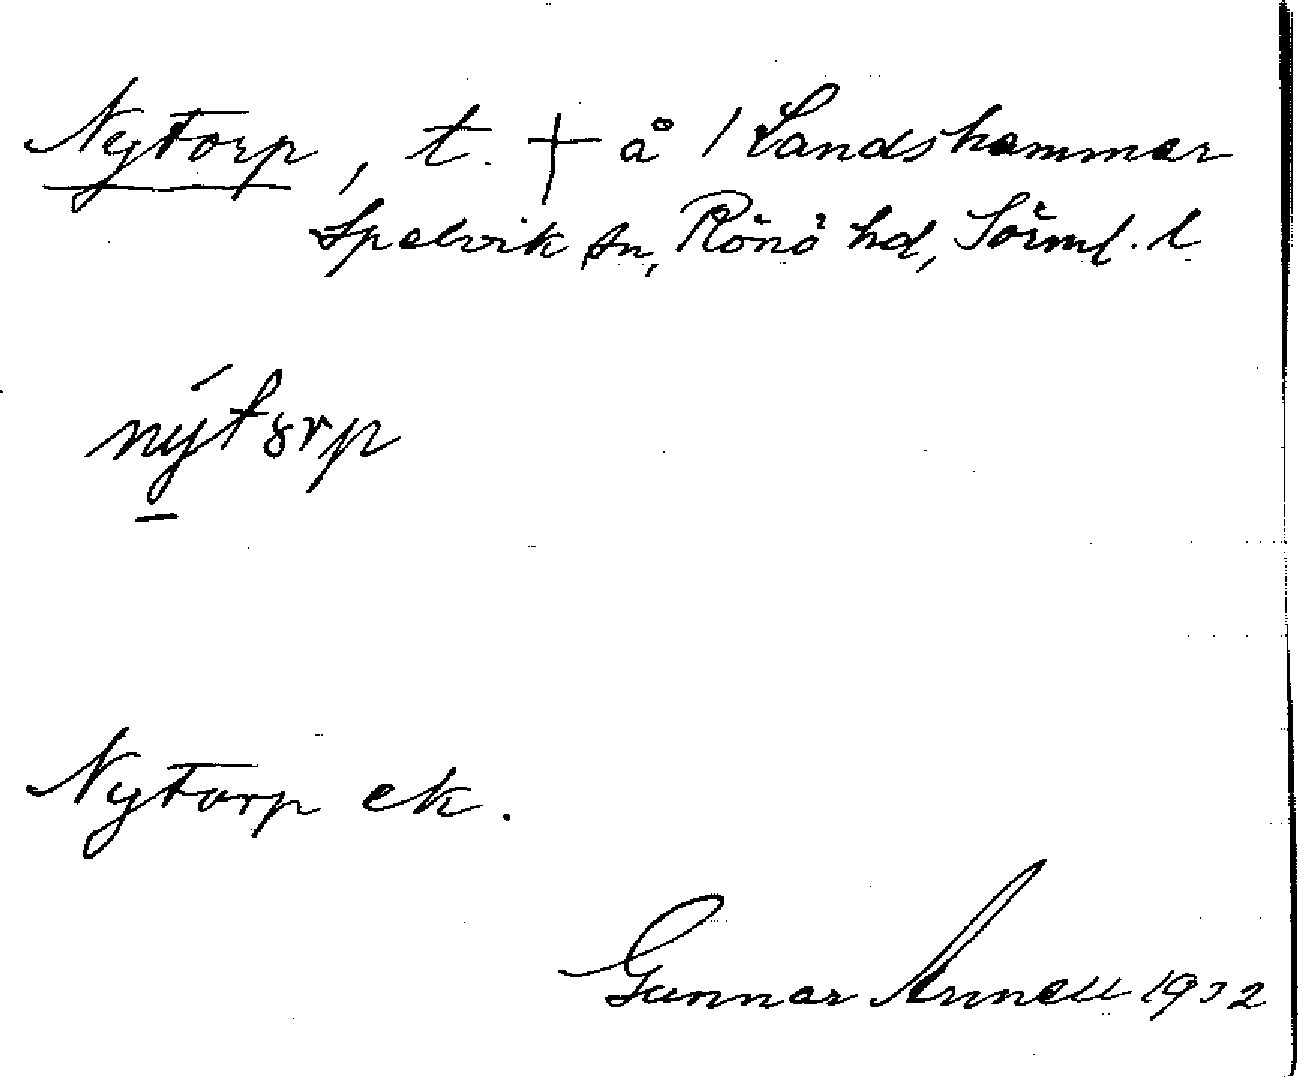 Nytorp, t. † å 1 Landshammar
Spelvik sn, Rönö hd, Sörml. l
nýtorp
Nytorp ek.
Gunnar Annell 1932